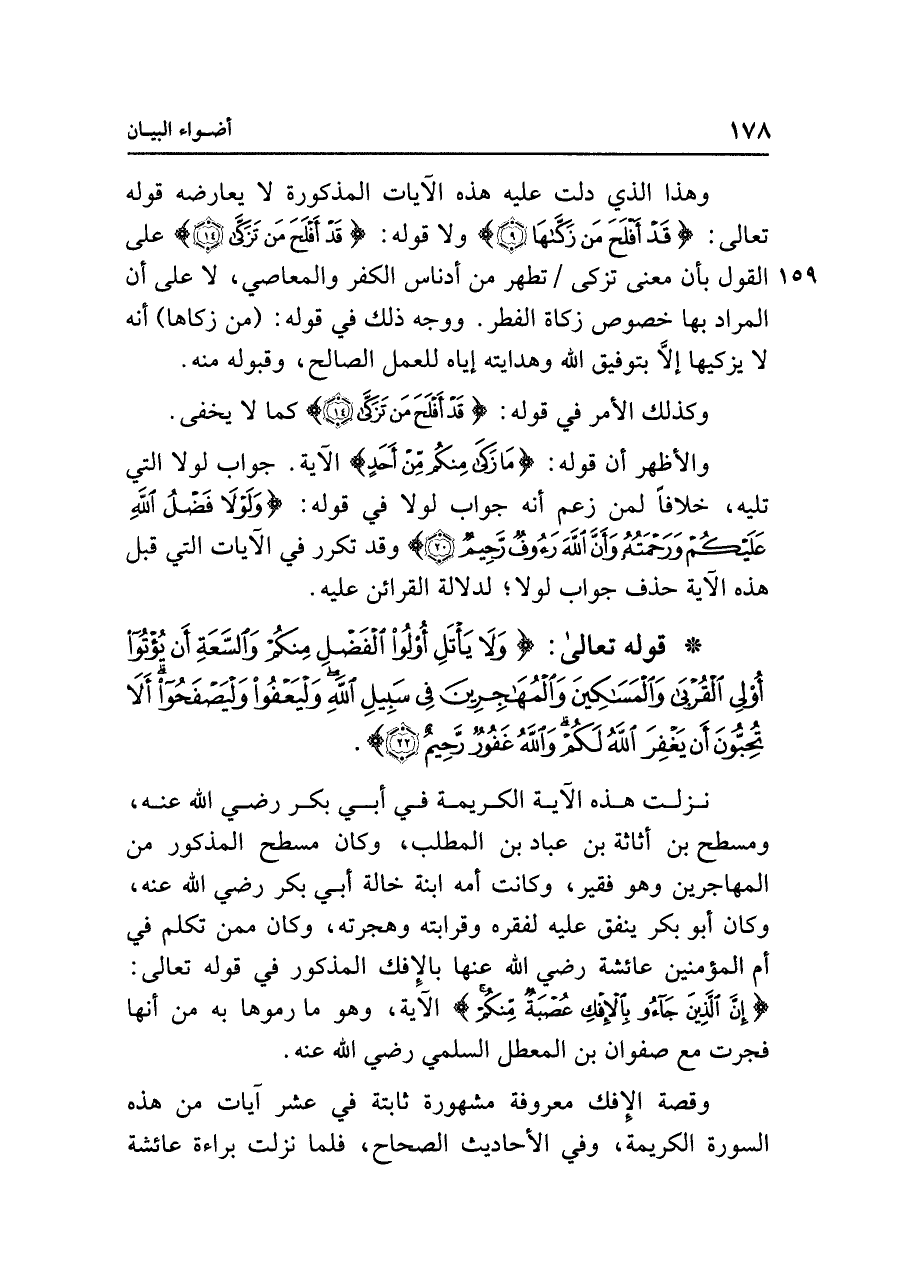 ١٧٨ أضواء البيان
وهذا الذي دلت عليه هذه الآيات المذكورة لا يعارضه قوله
تعالى: ﴿قَدْ أَفْلَحَ مَن زَكَّىٰهَا ٩﴾ ولا قوله: ﴿قَدْ أَفْلَحَ مَن تَزَكَّىٰ ١٤﴾ على
١٥٩ القول بأن معنى تزكى / تطهر من أدناس الكفر والمعاصي، لا على أن
المراد بها خصوص زكاة الفطر. ووجه ذلك في قوله: (من زكاها) أنه
لا يزكيها إلاَّ بتوفيق الله وهدايته إياه للعمل الصالح، وقبوله منه.
وكذلك الأمر في قوله: ﴿قَدْ أَفْلَحَ مَن تَزَكَّىٰ ١٤﴾ كما لا يخفى.
والأظهر أن قوله: ﴿مَا زَكَىٰ مِنكُم مِّنْ أَحَدٍ﴾ الآية. جواب لولا التي
تليه، خلافاً لمن زعم أنه جواب لولا في قوله: ﴿وَلَوْلَا فَضْلُ ٱللَّهِ
عَلَيْكُمْ وَرَحْمَتُهُۥ وَأَنَّ ٱللَّهَ رَءُوفٌ رَّحِيمٌ ٢٠﴾ وقد تكرر في الآيات التي قبل
هذه الآية حذف جواب لولا؛ لدلالة القرائن عليه.
* قوله تعالىٰ: ﴿وَلَا يَأْتَلِ أُوْلُوا۟ ٱلْفَضْلِ مِنكُمْ وَٱلسَّعَةِ أَن يُؤْتُوٓا۟
أُوْلِى ٱلْقُرْبَىٰ وَٱلْمَسَٰكِينَ وَٱلْمُهَٰجِرِينَ فِى سَبِيلِ ٱللَّهِ ۖ وَلْيَعْفُوا۟ وَلْيَصْفَحُوٓا۟ ۗ أَلَا
تُحِبُّونَ أَن يَغْفِرَ ٱللَّهُ لَكُمْ ۗ وَٱللَّهُ غَفُورٌ رَّحِيمٌ ٢٢﴾.
نزلت هذه الآية الكريمة في أبي بكر رضي الله عنه،
ومسطح بن أثاثة بن عباد بن المطلب، وكان مسطح المذكور من
المهاجرين وهو فقير، وكانت أمه ابنة خالة أبي بكر رضي الله عنه،
وكان أبو بكر ينفق عليه لفقره وقرابته وهجرته، وكان ممن تكلم في
أم المؤمنين عائشة رضي الله عنها بالإفك المذكور في قوله تعالى:
﴿إِنَّ ٱلَّذِينَ جَآءُو بِٱلْإِفْكِ عُصْبَةٌ مِّنكُمْ ۚ﴾ الآية، وهو ما رموها به من أنها
فجرت مع صفوان بن المعطل السلمي رضي الله عنه.
وقصة الإفك معروفة مشهورة ثابتة في عشر آيات من هذه
السورة الكريمة، وفي الأحاديث الصحاح، فلما نزلت براءة عائشة